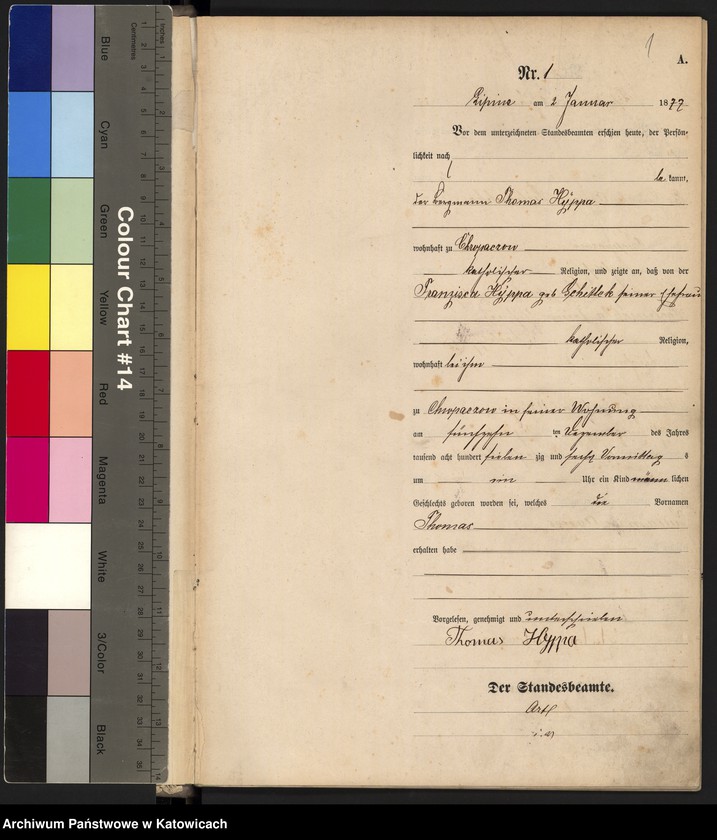 Blue
Cyan
Green
Yellow
Red
Magenta
White
3/Color
Black
Colour Chart #14
Centimetres
Inches
1
A.
Nr. 1
Lipine am 2 Januar 1877
Vor dem unterzeichneten Standesbeamten erschien heute, der Persön-
lichkeit nach
be kannt,
der Bergmann Thomas Hyppa
wohnhaft zu Chropaczow
katholischer Religion, und zeigte an, daß von der
Franzisca Hyppa geb seiner Ehefrau
katholischer Religion,
wohnhaft bei ihm
zu Chropaczow in seiner Wohnung
am fünfzehn ten Dezember des Jahres
tausend acht hundert sieben zig und sechs Vormittag s
um Uhr ein Kind männ lichen
Geschlechts geboren worden sei, welches Vornamen
Thomas
erhalten habe
Vorgelesen, genehmigt und unterschrieben
Thomas Hyppa
Der Standesbeamte.
Archiwum Państwowe w Katowicach